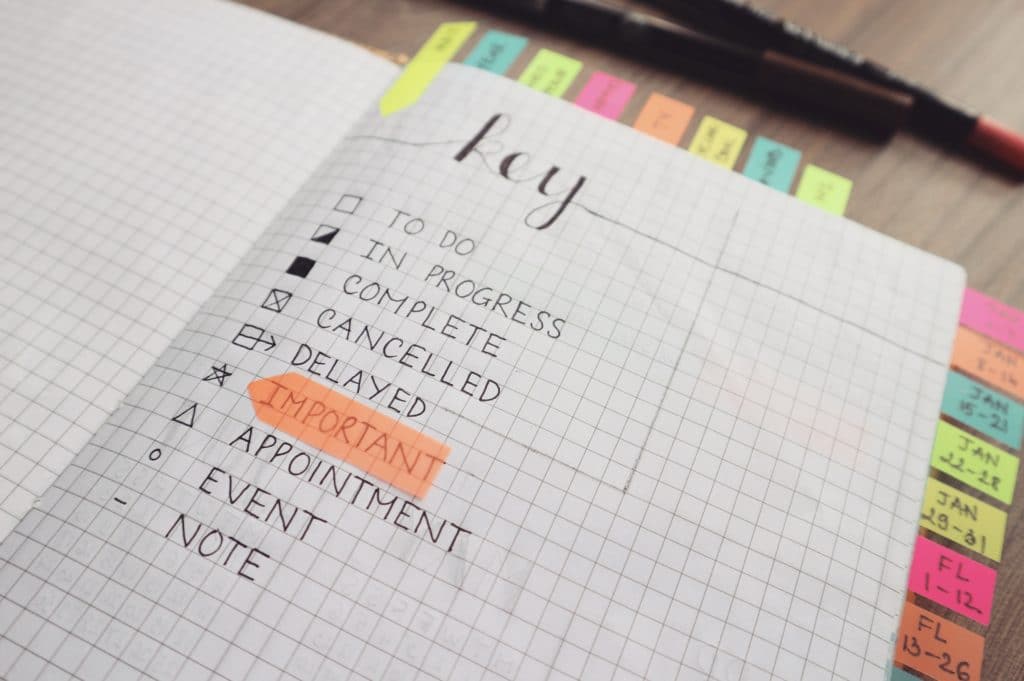 key
TO DO
IN PROGRESS
COMPLETE
CANCELLED
DELAYED
IMPORTANT
APPOINTMENT
EVENT
NOTE
JAN
JAN
15-21
JAN
22-28
JAN
29-31
FL
1-12
FL
13-26